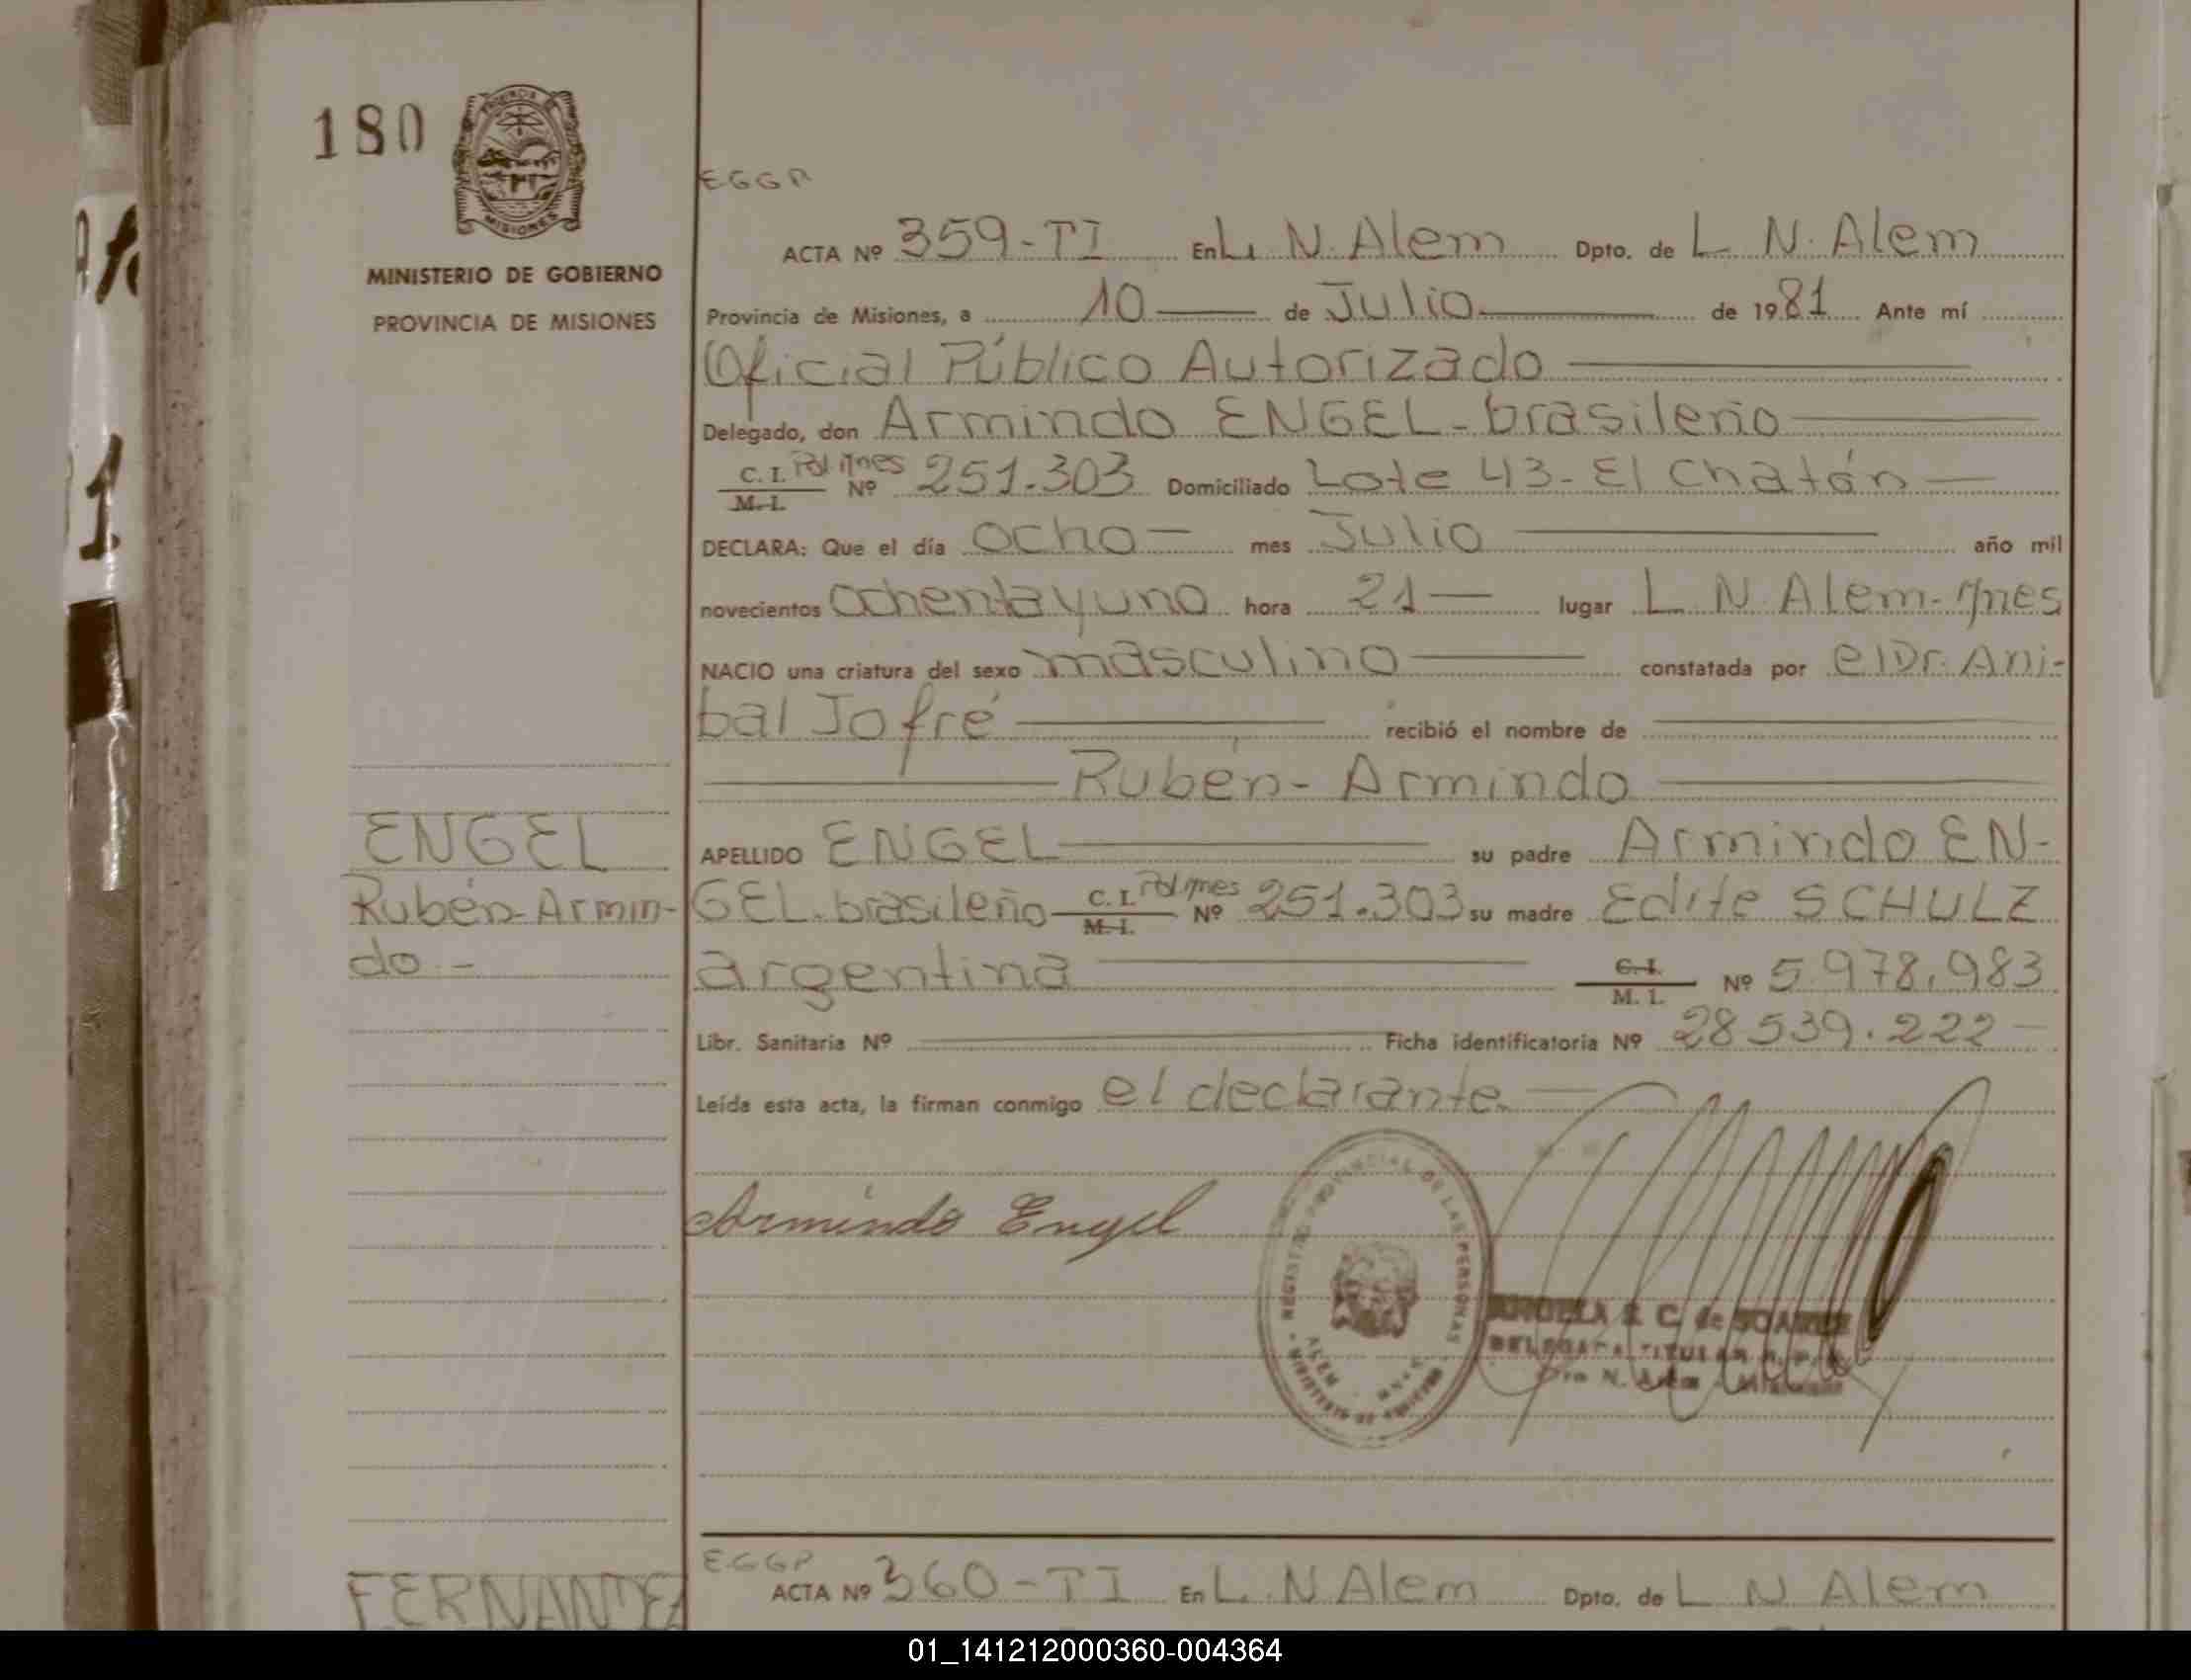 180
PROVINCIA DE
MISIONES
MINISTERIO DE GOBIERNO
PROVINCIA DE MISIONES
ENGEL
Rubén-Armin-
do-
EGGP
ACTA Nº 359-TI En L. N. Alem Dpto. de L. N. Alem
Provincia de Misiones, a 10 de Julio de 1981 Ante mí
Oficial Público Autorizado
Delegado, don Armindo ENGEL-brasileño
C. I. Pol Mnes M. I. Nº 251.303 Domiciliado Lote 43-El Chatón
DECLARA: Que el día ocho mes Julio año mil
novecientos ochentayuno hora 21 lugar L. N. Alem-Mnes
NACIO una criatura del sexo masculino constatada por el Dr. Ani-
bal Jofré recibió el nombre de
Rubén-Armindo
APELLIDO ENGEL su padre Armindo EN-
GEL-brasileño C. I. Pol Mnes M. I. Nº 251.303 su madre Edite SCHULZ
argentina C. I. M. I. Nº 5.978.983
Libr. Sanitaria Nº Ficha identificatoria Nº 28.539.222
Leída esta acta, la firman conmigo el declarante.
Armindo Engel
REGISTRO PROVINCIAL DE LAS PERSONAS
ALEM
S. C. de SOAREZ
DELEGADA TITULAR R. P.
N. Alem - Misiones
FERNANDEZ
EGGP
ACTA Nº 360-TI En L. N. Alem Dpto. de L. N. Alem
01_141212000360-004364